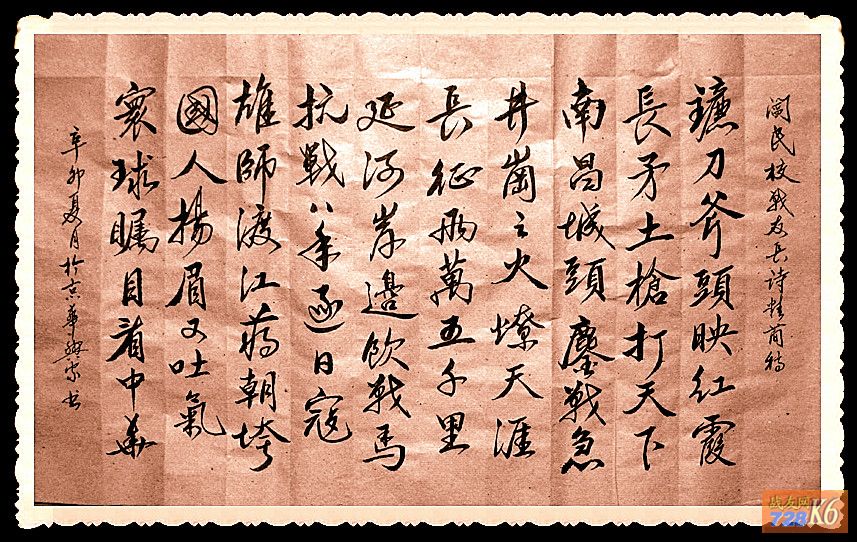 閻民校战友长诗　前稿
镰刀斧頭映红霞
長矛土槍打天下
南昌城頭鏖戰急
井崗之火燎天涯
長征兩萬五千里
延河岸邊飲戰馬
抗戰八年逐日寇
雄師渡江蔣朝垮
國人揚眉又吐氣
寰球瞩目看中華
辛卯夏月於京華 書
战友网
728K6